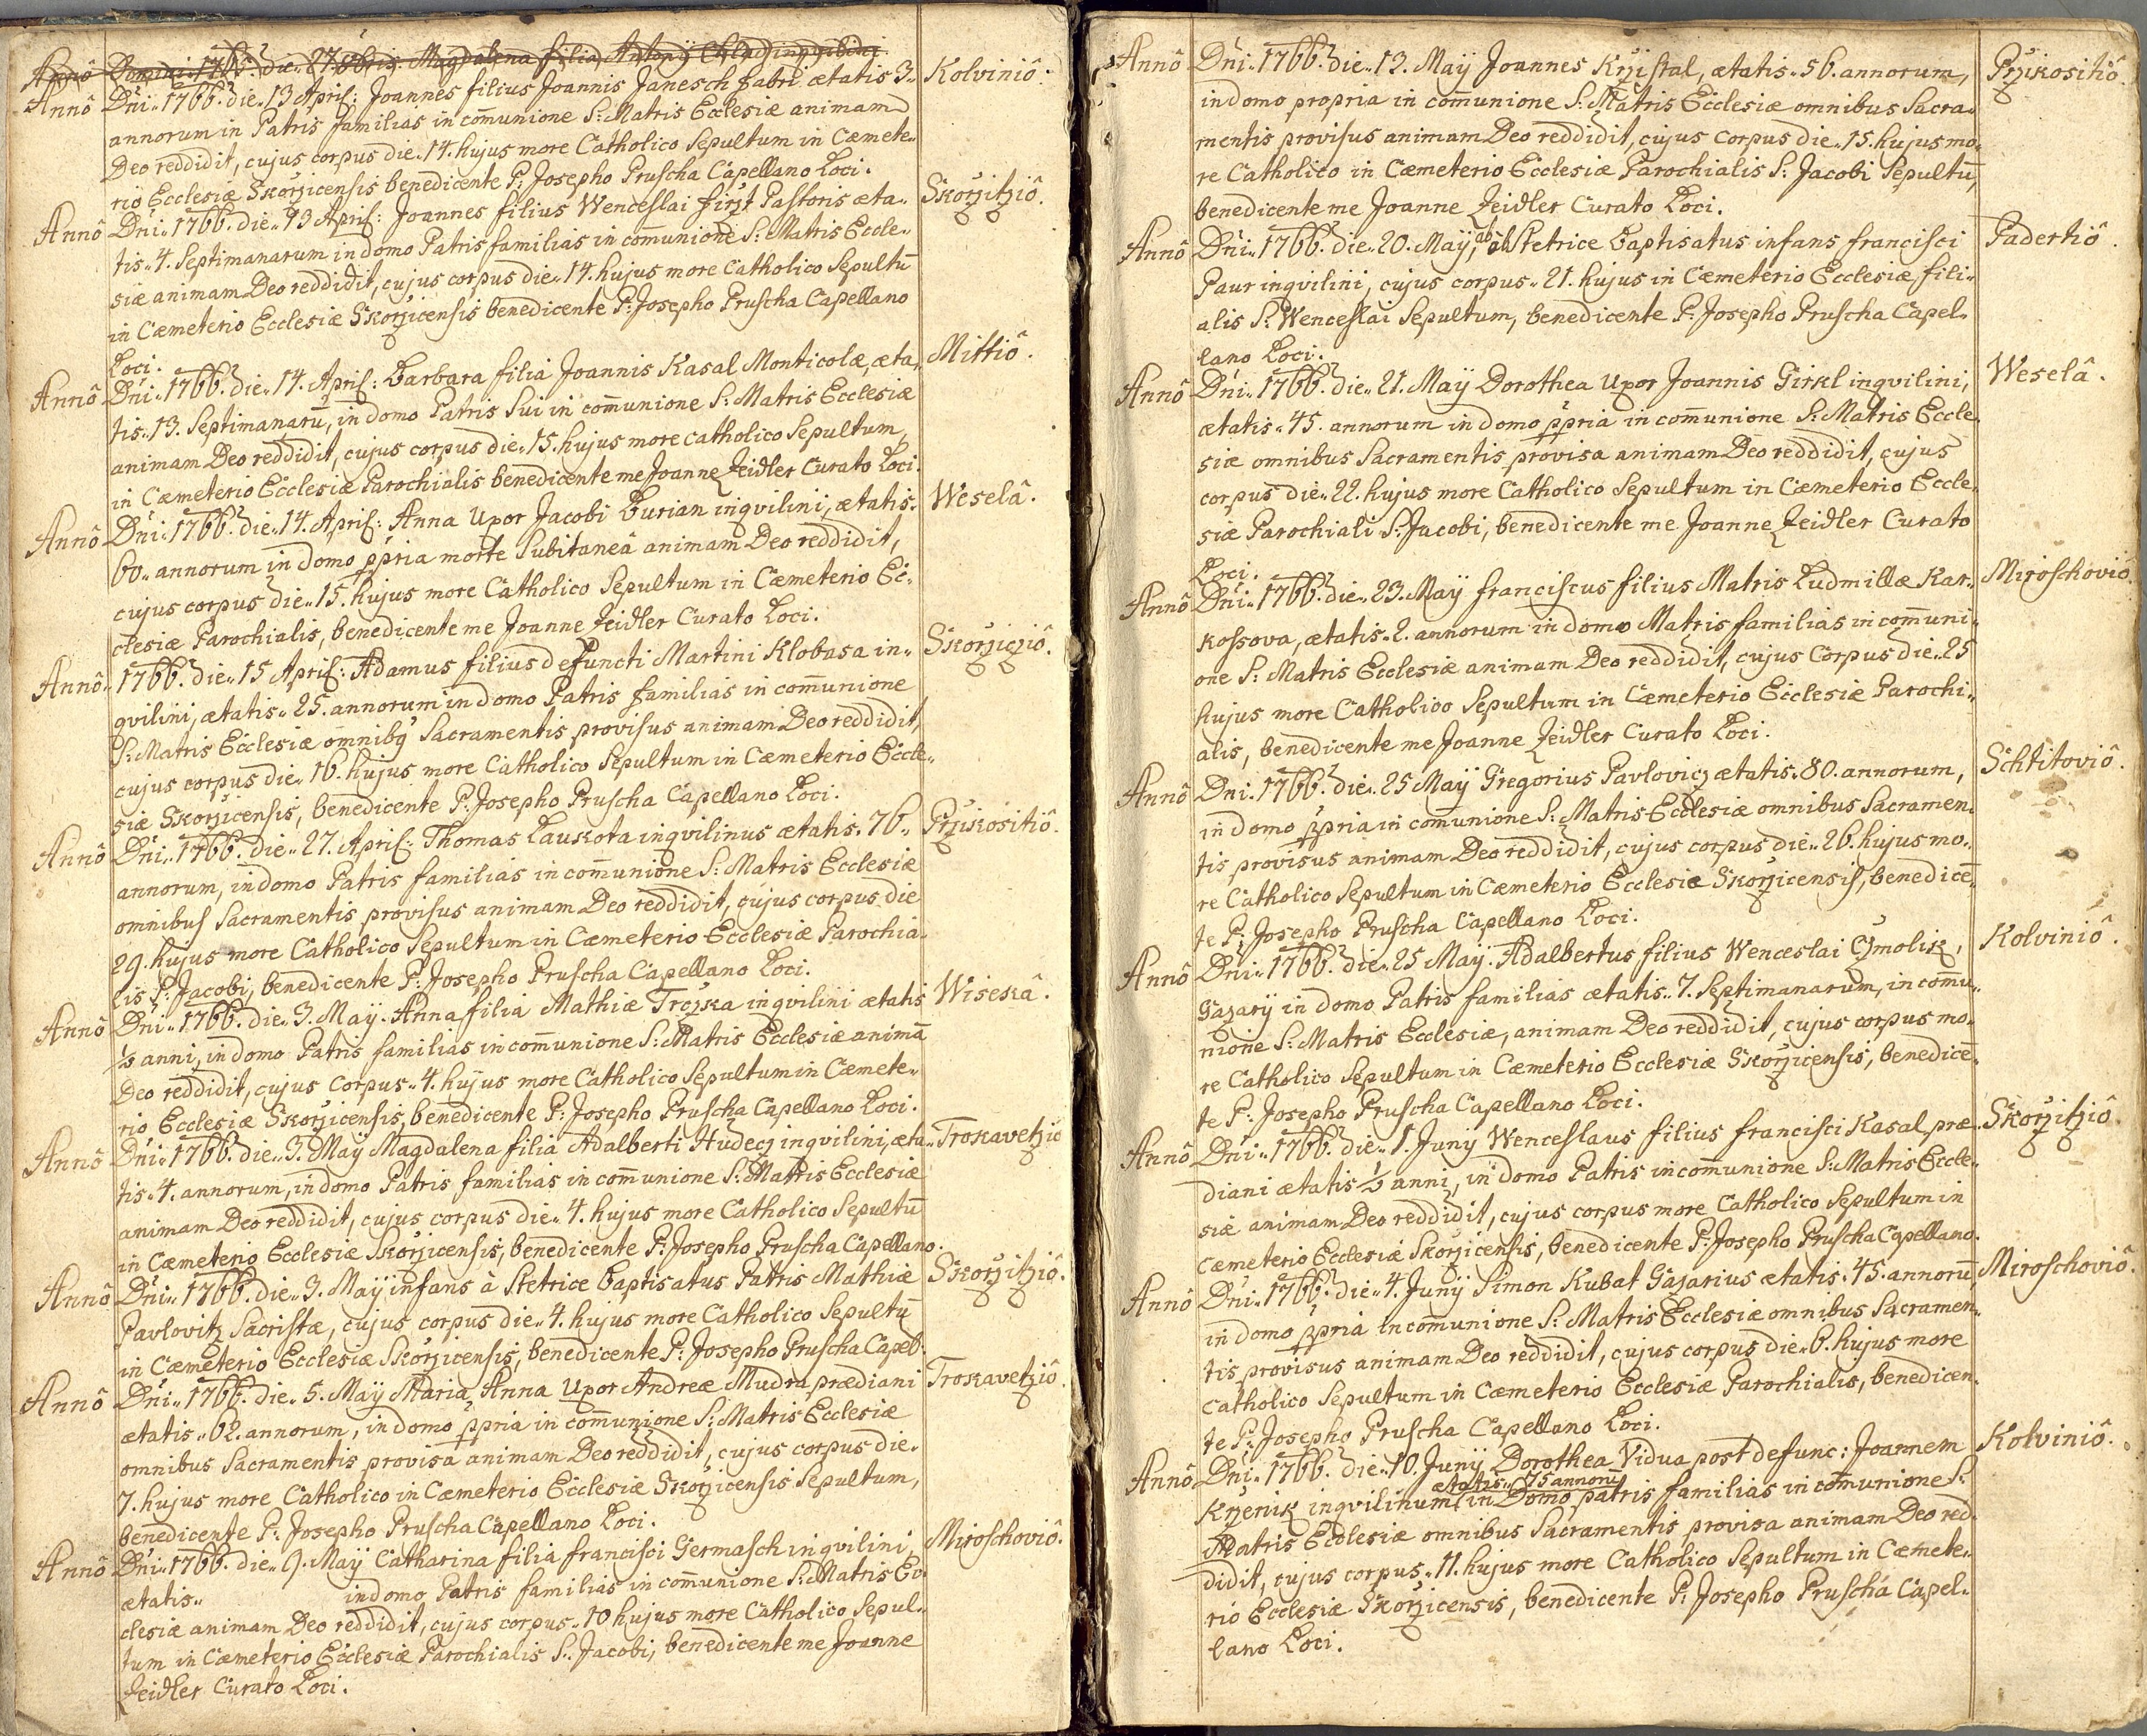 Anno Domini 1766 die 27 Magdalena filia Antonÿ inqvilini
Annô Dńi„ 1766. die„ 13 Apriſ: Joannes filius Joannis Janesch fabri ætatis 3„ Kolviniô.
annorum in Patris familias in com̄unione S: Matris Ecclesiæ animam
Deo reddidit, cujus corpus die„ 14. hujus more Catholico Sepultum in Cæmete„
rio Ecclesiæ Skorzicensis benedicente P: Josepho Pruscha Capellano Loci.
Annô Dńi„ 1766. die„ 13 Apriſ: Joannes filius Wenceslai first Pastoris æta„ Skorzitziô.
tis„ 4. Septimanarum in domo Patris familias in com̄unione S: Matris Eccle„
siæ animam Deo reddidit, cujus corpus die„ 14. hujus more Catholico Sepultū
in Cæmeterio Ecclesiæ Skorzicensis benedicente P: Josepho Pruscha Capellano
Loci.
Annô Dńi„ 1766. die„ 14. Apriſ: Barbara filia Joannis Kasal Monticolæ, æta„ Mittiô.
tis„ 13. Septimanarū, in domo Patris Sui in com̄unione S: Matris Ecclesiæ
animam Deo reddidit, cujus corpus die„ 15. hujus more catholico Sepultum,
in Cæmeterio Ecclesiæ Parochialis benedicente me Joanne Zeidler Curato Loci.
Annô Dńi„ 1766. die„ 14. Apriſ: Anna Uxor Jacobi Burian inqvilini, ætatis„ Weselâ.
60„ annorum in domo p̱pria morte Subitaneâ animam Deo reddidit,
cujus corpus die„ 15. hujus more Catholico Sepultum in Cæmeterio Ec„
clesiæ Parochialis, benedicente me Joanne Zeidler Curato Loci.
Annô„ 1766. die„ 15 Apriſ: Adamus filius defuncti Martini Klobasa in„ Skorziciô.
qvilini, ætatis„ 25. annorum in domo Patris familias in com̄unione
S: Matris Ecclesiæ omnibq Sacramentis provisus animam Deo reddidit,
cujus corpus die„ 16. hujus more Catholico Sepultum in Cæmeterio Eccle„
siæ Skorzicensis, benedicente P: Josepho Pruscha Capellano Loci.
Annô Dńi„ 1766. die„ 27. Apriſ: Thomas Laukota inqvilinus ætatis„ 76„ Przikositiô.
annorum, in domo Patris familias in com̄unione S: Matris Ecclesiæ
omnibus Sacramentis provisus animam Deo reddidit, cujus corpus die
29. hujus more Catholico Sepultum in Cæmeterio Ecclesiæ Parochia„
lis S: Jacobi, benedicente P: Josepho Pruscha Capellano Loci.
Annô Dńi„ 1766. die„ 3. Maÿ. Anna filia Mathiæ Trojka inqvilini ætatis Wisekâ.
½ anni, in domo Patris familias in com̄unione S: Matris Ecclesiæ animā
Deo reddidit, cujus Corpus„ 4. hujus more Catholico Sepultum in Cæmete„
rio Ecclesiæ Skorzicensis, benedicente P: Josepho Pruscha Capellano Loci.
Annô Dńi„ 1766. die„ 3. Maÿ Magdalena filia Adalberti Hudecz inqvilini, æta„ Trokavetziô
tis„ 4. annorum, in domo Patris familias in com̄unione S: Matris Ecclesiæ
animam Deo reddidit, cujus corpus die„ 4. hujus more Catholico Sepultū
in Cæmeterio Ecclesiæ Skorzicensis, benedicente P: Josepho Pruscha Capellano.
Annô Dńi„ 1766. die„ 3. Maÿ infans à Stetrice baptisatus Patris Mathiæ Skorzitziô.
Pavlovitz Sacristæ, cujus corpus die„ 4. hujus more Catholico Sepultū
in Cæmeterio Ecclesiæ Skorzicensis, benedicente P: Josepho Pruscha Capel.
Annô Dńi„ 1766. die„ 5. Maÿ Maria Anna Uxor Andreæ Mudra prædiani Trokavetziô.
ætatis„ 62. annorum, in domo p̱pria in com̄unione S: Matris Ecclesiæ
omnibus Sacramentis provisa animam Deo reddidit, cujus corpus die„
7. hujus more Catholico in Cæmeterio Ecclesiæ Skorzicensis Sepultum,
benedicente P: Josepho Pruscha Capellano Loci.
Annô Dńi„ 1766. die„ 9. Maÿ Catharina filia francisci Germasch inqvilini, Miroschoviô.
ætatis„ in domo Patris familias in com̄unione S: Matris Ec„
clesiæ animam Deo reddidit, cujus corpus„ 10 hujus more Catholico Sepul„
tum in Cæmeterio Ecclesiæ Parochialis S: Jacobi, benedicente me Joanne
Zeidler Curato Loci.
Annô Dńi„ 1766. die„ 13. Maÿ Joannes Krzistal, ætatis„ 56. annorum, Przikositiô.
in domo propria in com̄unione S: Matris Ecclesiæ omnibus Sacra„
mentis provisus animam Deo reddidit, cujus corpus die„ 15. hujus mo„
re Catholico in Cæmeterio Ecclesiæ Parochialis S: Jacobi Sepultū,
benedicente me Joanne Zeidler Curato Loci.
Annô Dńi„ 1766. die„ 20. Maÿ, ab obStetrice baptisatus infans francisci Padertiô.
Paur inqvilini, cujus corpus„ 21. hujus in Cæmeterio Ecclesiæ fili„
alis S: Wenceslai Sepultum, benedicente P: Josepho Pruscha Capel„
lano Loci.
Annô Dńi„ 1766. die„ 21. Maÿ Dorothea Uxor Joannis Girkl inqvilini, Weselâ.
ætatis„ 45. annorum in domo p̱pria in com̄unione S: Matris Eccle„
siæ omnibus Sacramentis provisa animam Deo reddidit, cujus
corpus die„ 22. hujus more Catholico Sepultum in Cæmeterio Eccle„
siæ Parochiali S: Jacobi, benedicente me Joanne Zeidler Curato
Loci.
Annô Dńi„ 1766. die„ 23. Maÿ franciscus filius Matris Ludmillæ Kar„ Miroschoviô.
kossova, ætatis„ 2. annorum in domo Matris familias in com̄uni„
one S: Matris Ecclesiæ animam Deo reddidit, cujus Corpus die„ 25
hujus more Catholico Sepultum in Cæmeterio Ecclesiæ Parochi„
alis, benedicente me Joanne Zeidler Curato Loci.
Annô Dńi„ 1766. die„ 25 Maÿ Gregorius Pavlovicz ætatis„ 80. annorum, Schtitoviô.
in domo p̱pria in com̄unione S: Matris Ecclesiæ omnibus Sacramen„
tis provisus animam Deo reddidit, cujus corpus die„ 26. hujus mo„
re Catholico Sepultum in Cæmeterio Ecclesiæ Skorzicensis, benedicē„
te P: Josepho Pruscha Capellano Loci.
Annô Dńi„ 1766. die„ 25 Maÿ. Adalbertus filius Wenceslai Czmolik, Kolviniô.
Gazarÿ in domo Patris familias ætatis„ 7. Septimanarum, in com̄u„
nione S: Matris Ecclesiæ, animam Deo reddidit, cujus corpus mo„
re Catholico Sepultum in Cæmeterio Ecclesiæ Skorzicensis, benedicē„
te P: Josepho Pruscha Capellano Loci.
Annô Dńi„ 1766. die„ 1. Junÿ Wenceslaus filius francisci Kasal præ„ Skorzitziô.
diani ætatis ½ anni, in domo Patris in com̄unione S: Matris Eccle„
siæ animam Deo reddidit, cujus corpus more Catholico Sepultum in
Cæmeterio Ecclesiæ Skorzicensis, benedicente P: Josepho Pruscha Capellano.
Annô Dńi„ 1766. die„ 4. Junÿ Simon Kubat Gazarius ætatis„ 45. annorū, Miroschoviô.
in domo p̱pria in com̄unione S: Matris Ecclesiæ omnibus Sacramen„
tis provisus animam Deo reddidit, cujus corpus die„ 6. hujus more
Catholico Sepultum in Cæmeterio Ecclesiæ Parochialis, benedicen„
te P: Josepho Pruscha Capellano Loci.
Annô Dńi„ 1766. die„ 10. Junÿ Dorothea Vidua post defunc: Joannem Kolviniô.
ætatis„ 75 annorū
Krzenik inqvilinum in Domo patris familias in com̄unione S:
Matris Ecclesiæ omnibus Sacramentis provisa animam Deo red„
didit, cujus corpus„ 11. hujus more Catholico Sepultum in Cæmete„
rio Ecclesiæ Skorzicensis, benedicente P: Josepho Pruscha Capel„
lano Loci.